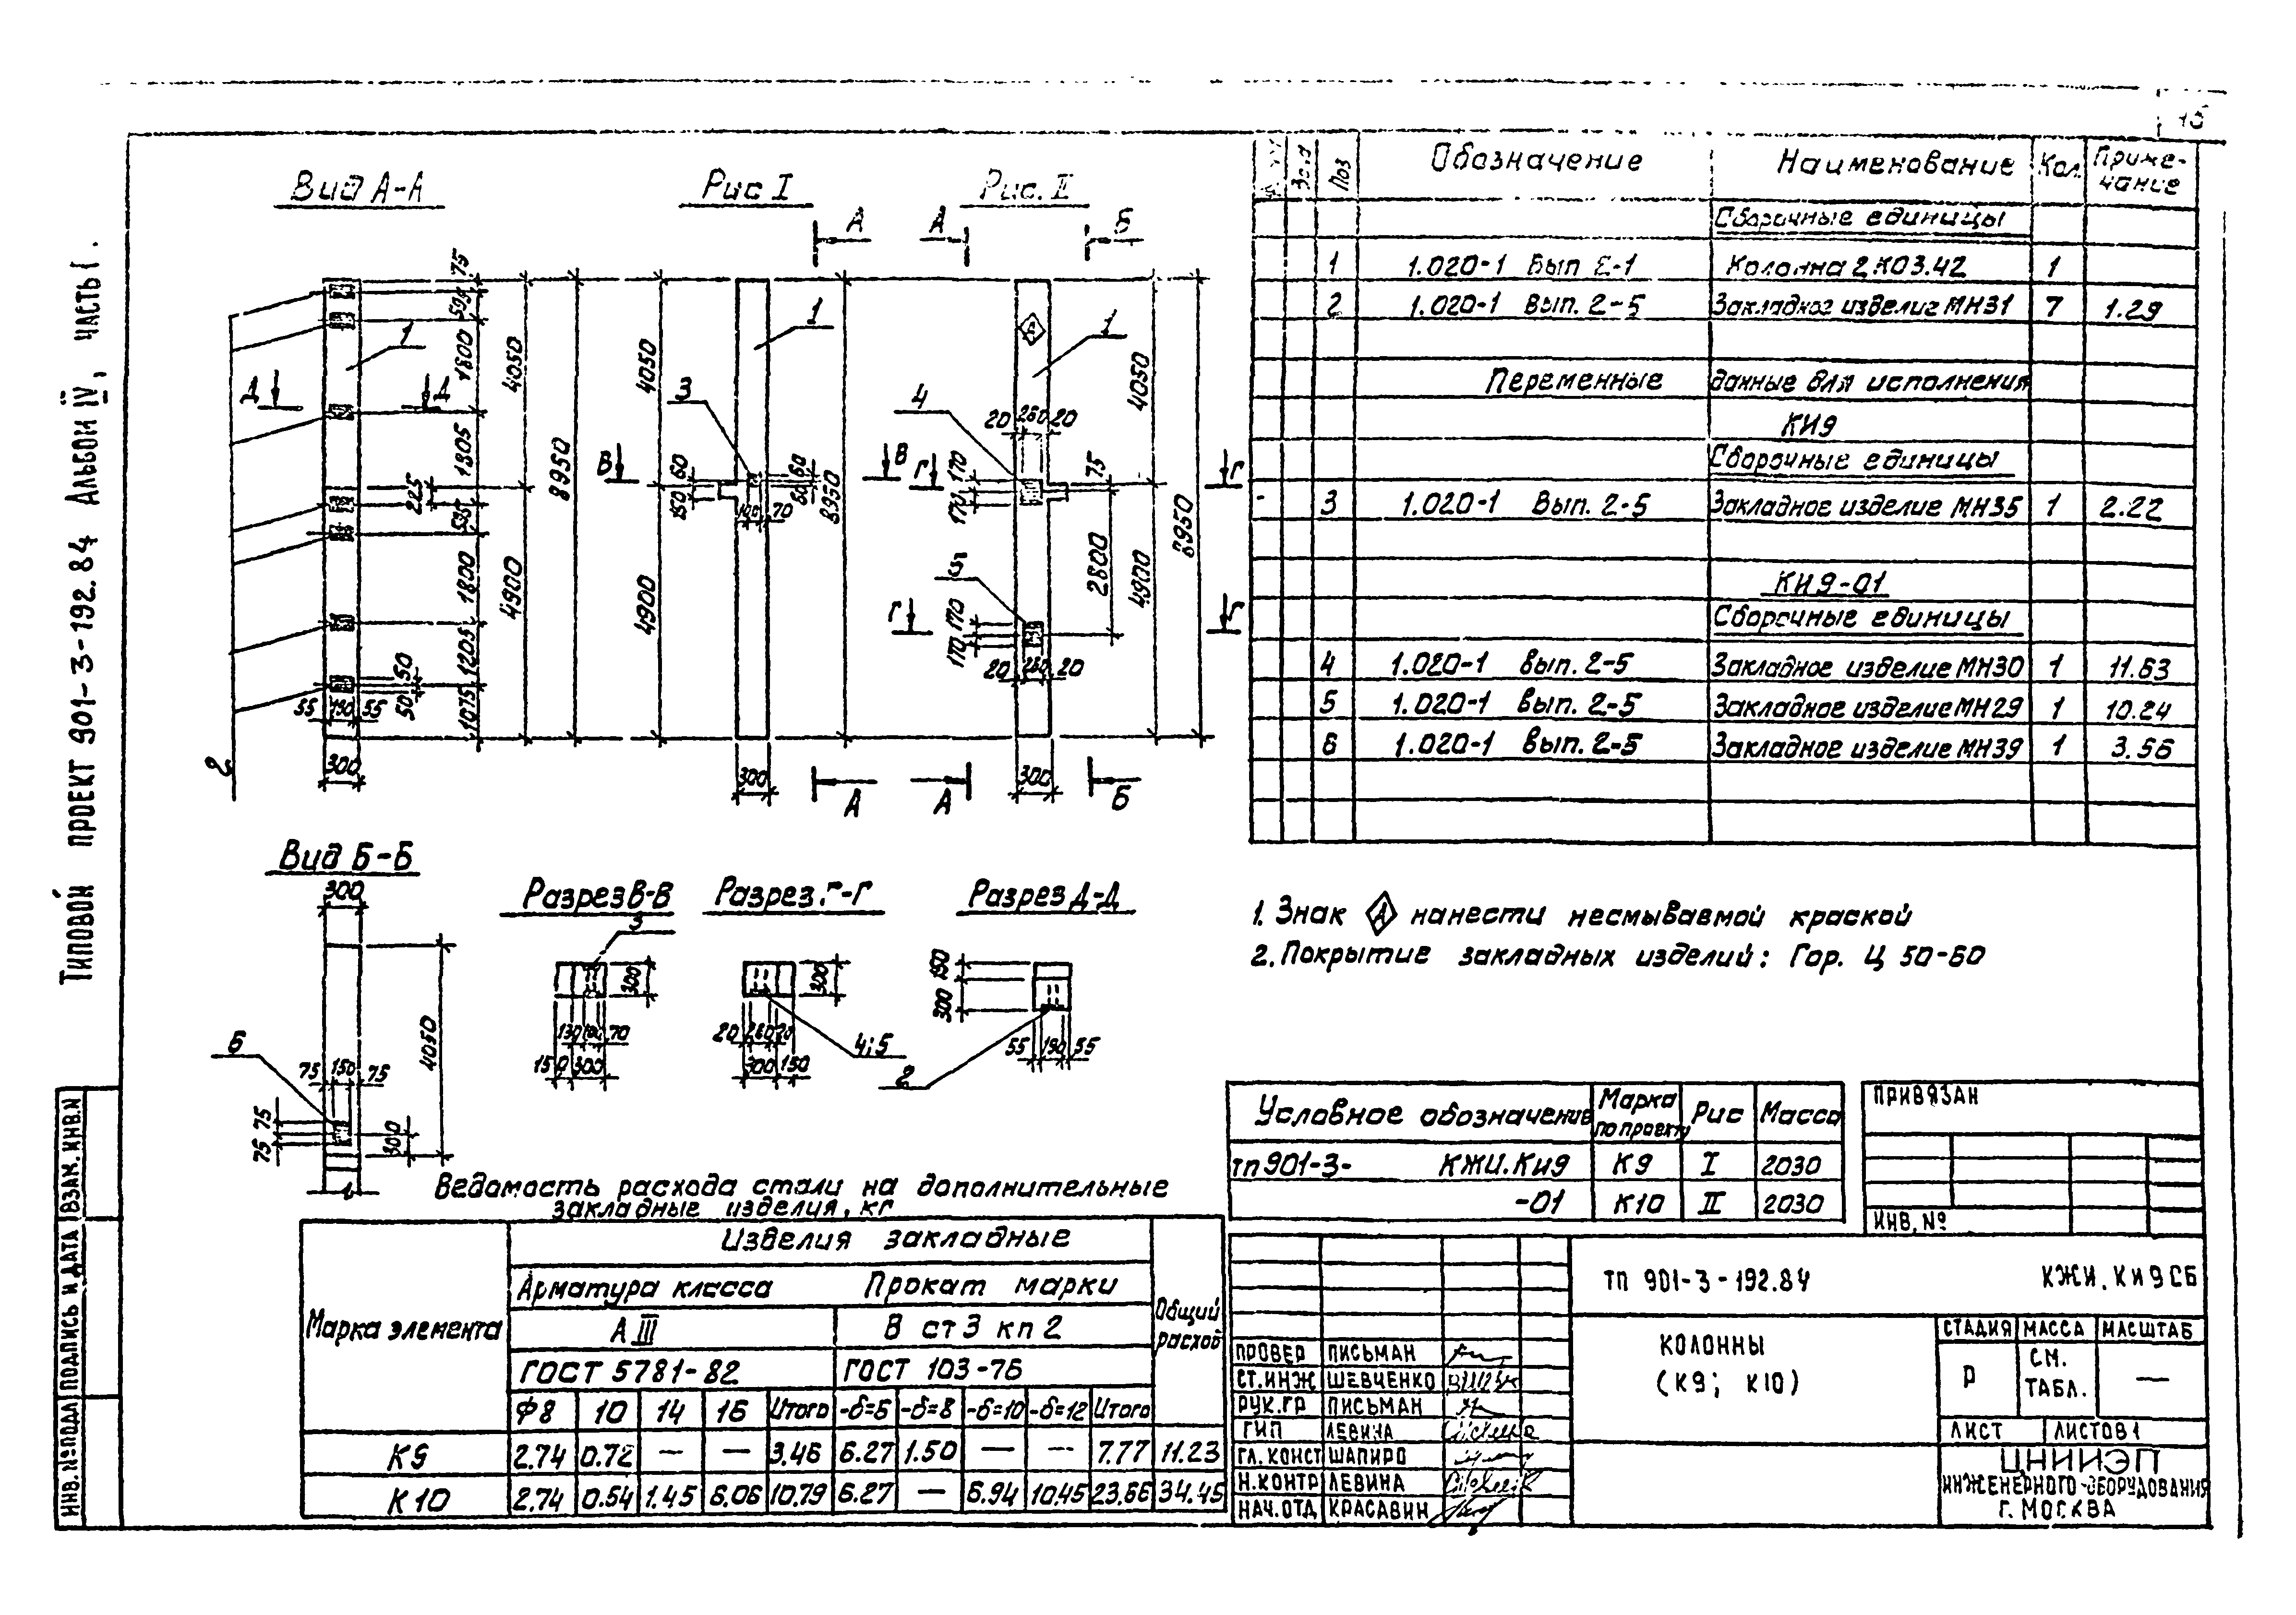 Типовой проект 901-3-192.84 Альбом IV, часть I.
Вид А-А
Рис I
Рис. II
А
А
Б
75
595
1800
1805
225
595
1800
1205
1075
4050
4900
8950
1
Д
Д
50
50
55 190 55
300
2
4050
4900
8950
1
3
В
В
60
150
60
60
100 70
300
А
А
Б
А
1
4
20 260 20
170
170
75
Г
Г
5
170
170
Г
Г
20 260 20
2800
4050
4900
8950
300
Вид Б-Б
300
4050
6
75 150 75
75
75
300
Разрез В-В
3
300
130 100 70
150 300
Разрез Г-Г
300
20 260 20
300 150
4;5
Разрез Д-Д
150
300
55 190 55
2
Поз Обозначение Наименование Кол. Приме-
чание
Сборочные единицы
1 1.020-1 Вып 2-1 Колонна 2КО3.42 1
2 1.020-1 Вып. 2-5 Закладное изделие МН31 7 1.29
Переменные данные для исполнения
КИ9
Сборочные единицы
3 1.020-1 Вып. 2-5 Закладное изделие МН35 1 2.22
КИ9-01
Сборочные единицы
4 1.020-1 Вып. 2-5 Закладное изделие МН30 1 11.63
5 1.020-1 Вып. 2-5 Закладное изделие МН29 1 10.24
6 1.020-1 Вып. 2-5 Закладное изделие МН39 1 3.56
1. Знак А нанести несмываемой краской
2. Покрытие закладных изделий: Гор. Ц 50-60
Условное обозначение Марка по проекту Рис Масса
тп 901-3- КЖИ.Ки9 К9 I 2030
-01 К10 II 2030
ПРИВЯЗАН
ИНВ. №
Ведомость расхода стали на дополнительные
закладные изделия, кг
Марка элемента Изделия закладные Общий расход
Арматура класса Прокат марки
А III В ст 3 кп 2
ГОСТ 5781-82 ГОСТ 103-76
Ф8 10 14 16 Итого -δ=6 -δ=8 -δ=10 -δ=12 Итого
К9 2.74 0.72 — — 3.46 6.27 1.50 — — 7.77 11.23
К10 2.74 0.54 1.45 6.06 10.79 6.27 — 6.94 10.45 23.66 34.45
ПРОВЕР ПИСЬМАН
СТ.ИНЖ ШЕВЧЕНКО
РУК.ГР ПИСЬМАН
ГИП ЛЕВИНА
ГЛ. КОНСТ ШАПИРО
Н.КОНТР ЛЕВИНА
НАЧ.ОТД КРАСАВИН
ТП 901-3-192.84 КЖИ.Ки9СБ
КОЛОННЫ
(К9; К10)
СТАДИЯ МАССА МАСШТАБ
Р СМ. ТАБЛ. —
ЛИСТ ЛИСТОВ 1
ЦНИИЭП
ИНЖЕНЕРНОГО ОБОРУДОВАНИЯ
Г. МОСКВА
ИНВ.№ ПОДЛ ПОДПИСЬ И ДАТА ВЗАМ. ИНВ.N